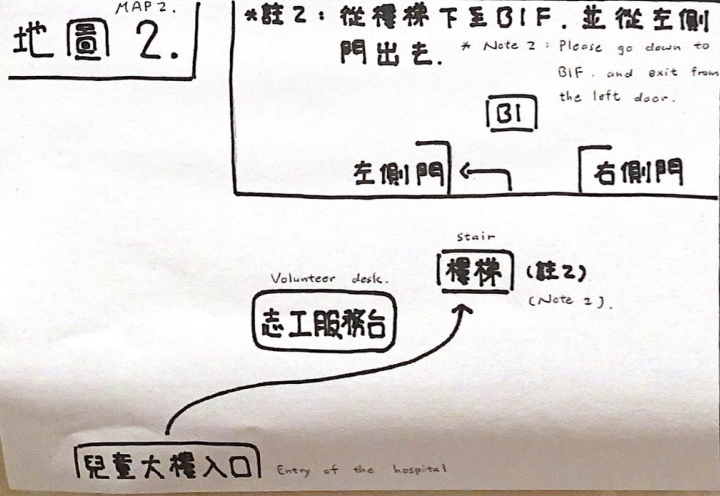 MAP 2.
地圖 2.
*註2：從樓梯下至B1F.並從左側
門出去.
* Note 2 : Please go down to
B1F. and exit from
the left door.
B1
左側門
右側門
stair
樓梯 (註2)
(Note 2).
Volunteer desk.
志工服務台
兒童大樓入口 Entry of the hospital